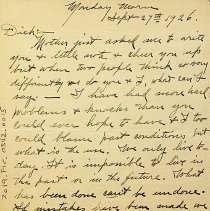 Monday Morn
Sept 27th 1926.
Dick:-
Mother just asked me to write
you a little note & cheer you up
but when two people think so very
differently as do you & I, what can I
say! - I have had more hard
problems & knocks than you
could ever hope to have & I too
could blame past conditions but
what is the use. We only live to-
day. It is impossible to live in
the past or in the future. What
has been done can't be undone.
If mistakes have been made we
2019.FIC.0312.0015